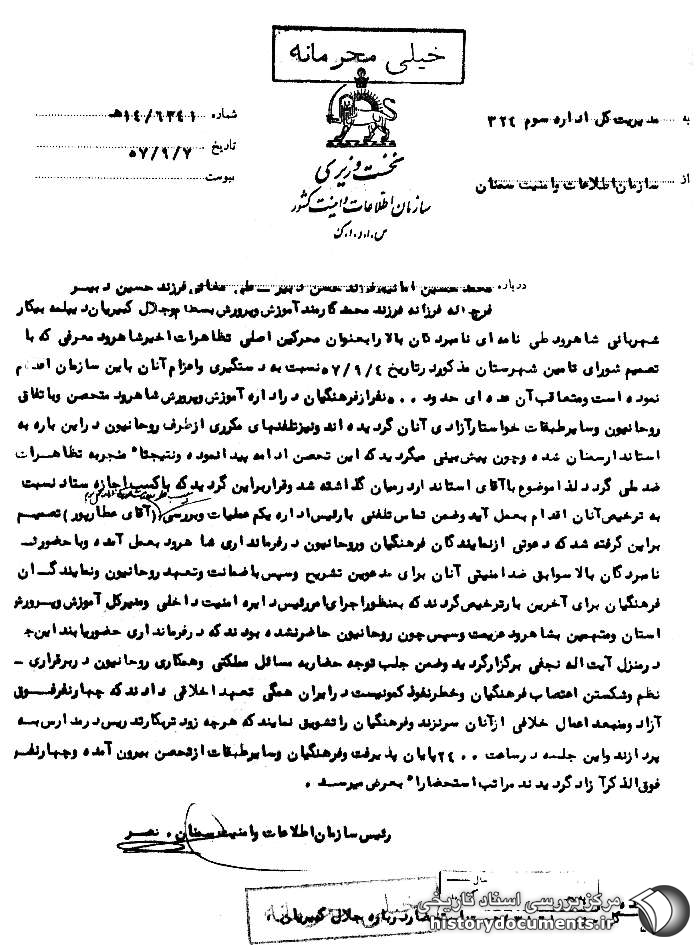 خیلی محرمانه
به مدیریت کل اداره سوم ۳۲۴
شماره ۱۴/۶۳۴۱هـ
تاریخ ۵۷/۹/۷
از سازمان اطلاعات و امنیت سمنان
پیوست
نخست وزیری
سازمان اطلاعات و امنیت کشور
س.ا.و.ا.ک
درباره محمد حسین امانیه فرزند حسن دبیر ـ علی فرزند حسین دبیر
فرج اله فرزانه فرزند محمد کارمند آموزش وپرورش بسطام وجلال گیریان دیپلمه بیکار
شهربانی شاهرود طی نامه ای نامبردگان بالا را بعنوان محرکین اصلی تظاهرات اخیر شاهرود معرفی که با
تصمیم شورای تامین شهرستان مذکور در تاریخ ۵۷/۹/۴ نسبت به دستگیری واعزام آنان باین سازمان اقدام
نموده است ومتعاقب آن عده ای حدود ۵۰۰ نفر از فرهنگیان در اداره آموزش وپرورش شاهرود متحصن وباتفاق
روحانیون وسایر طبقات خواستار آزادی آنان گردیده اند ونیز تلفنهای مکرری از طرف روحانیون در این باره به
استاندار سمنان شده وچون پیش بینی میگردید که این تحصن ادامه پیدا نموده ونتیجتا" منجر به تظاهرات
ضد ملی گردد لذا موضوع با آقای استاندار در میان گذاشته شد وقرار براین گردید که با کسب اجازه ستاد نسبت
به ترخیص آنان اقدام بعمل آید وضمن تماس تلفنی با رئیس اداره یکم عملیات وبررسی (آقای عطارپور) تصمیم
براین گرفته شد که دعوتی از نمایندگان فرهنگیان وروحانیون در فرمانداری شاهرود بعمل آمده وبا حضور
نامبردگان بالا سوابق ضد امنیتی آنان برای مدعوین تشریح وسپس با ضمانت وتعهد روحانیون ونمایندگان
فرهنگیان برای آخرین بار ترخیص گردند که بمنظور اجرای امر رئیس دایره امنیت داخلی ومدیرکل آموزش وپرورش
استان ومتهمین بشاهرود عزیمت وسپس چون روحانیون حاضر نشده بودند که در فرمانداری حضور یابند این جلسه
در منزل آیت اله نجفی برگزار گردید وضمن جلب توجه حضار به مسائل مملکتی وهمکاری روحانیون در برقراری ـ
نظم وشکستن اعتصاب فرهنگیان وخطر نفوذ کمونیست در ایران همگی تعهد اخلاقی دادند که چهار نفر فوق
آزاد ومنبعد اعمال خلافی از آنان سرنزند وفرهنگیان را تشویق نمایند که هرچه زودتر بکار تدریس در مدارس
پردازند واین جلسه در ساعت ۲۴۰۰ پایان پذیرفت وفرهنگیان وسایر طبقات از تحصن بیرون آمده وچهار نفر
فوق الذکر آزاد گردیدند مراتب استحضارا" بعرض میرسد .
رئیس سازمان اطلاعات وامنیت سمنان . نصر
مرکز بررسی اسناد تاریخی
historydocuments.ir
درباره جلال گیریان